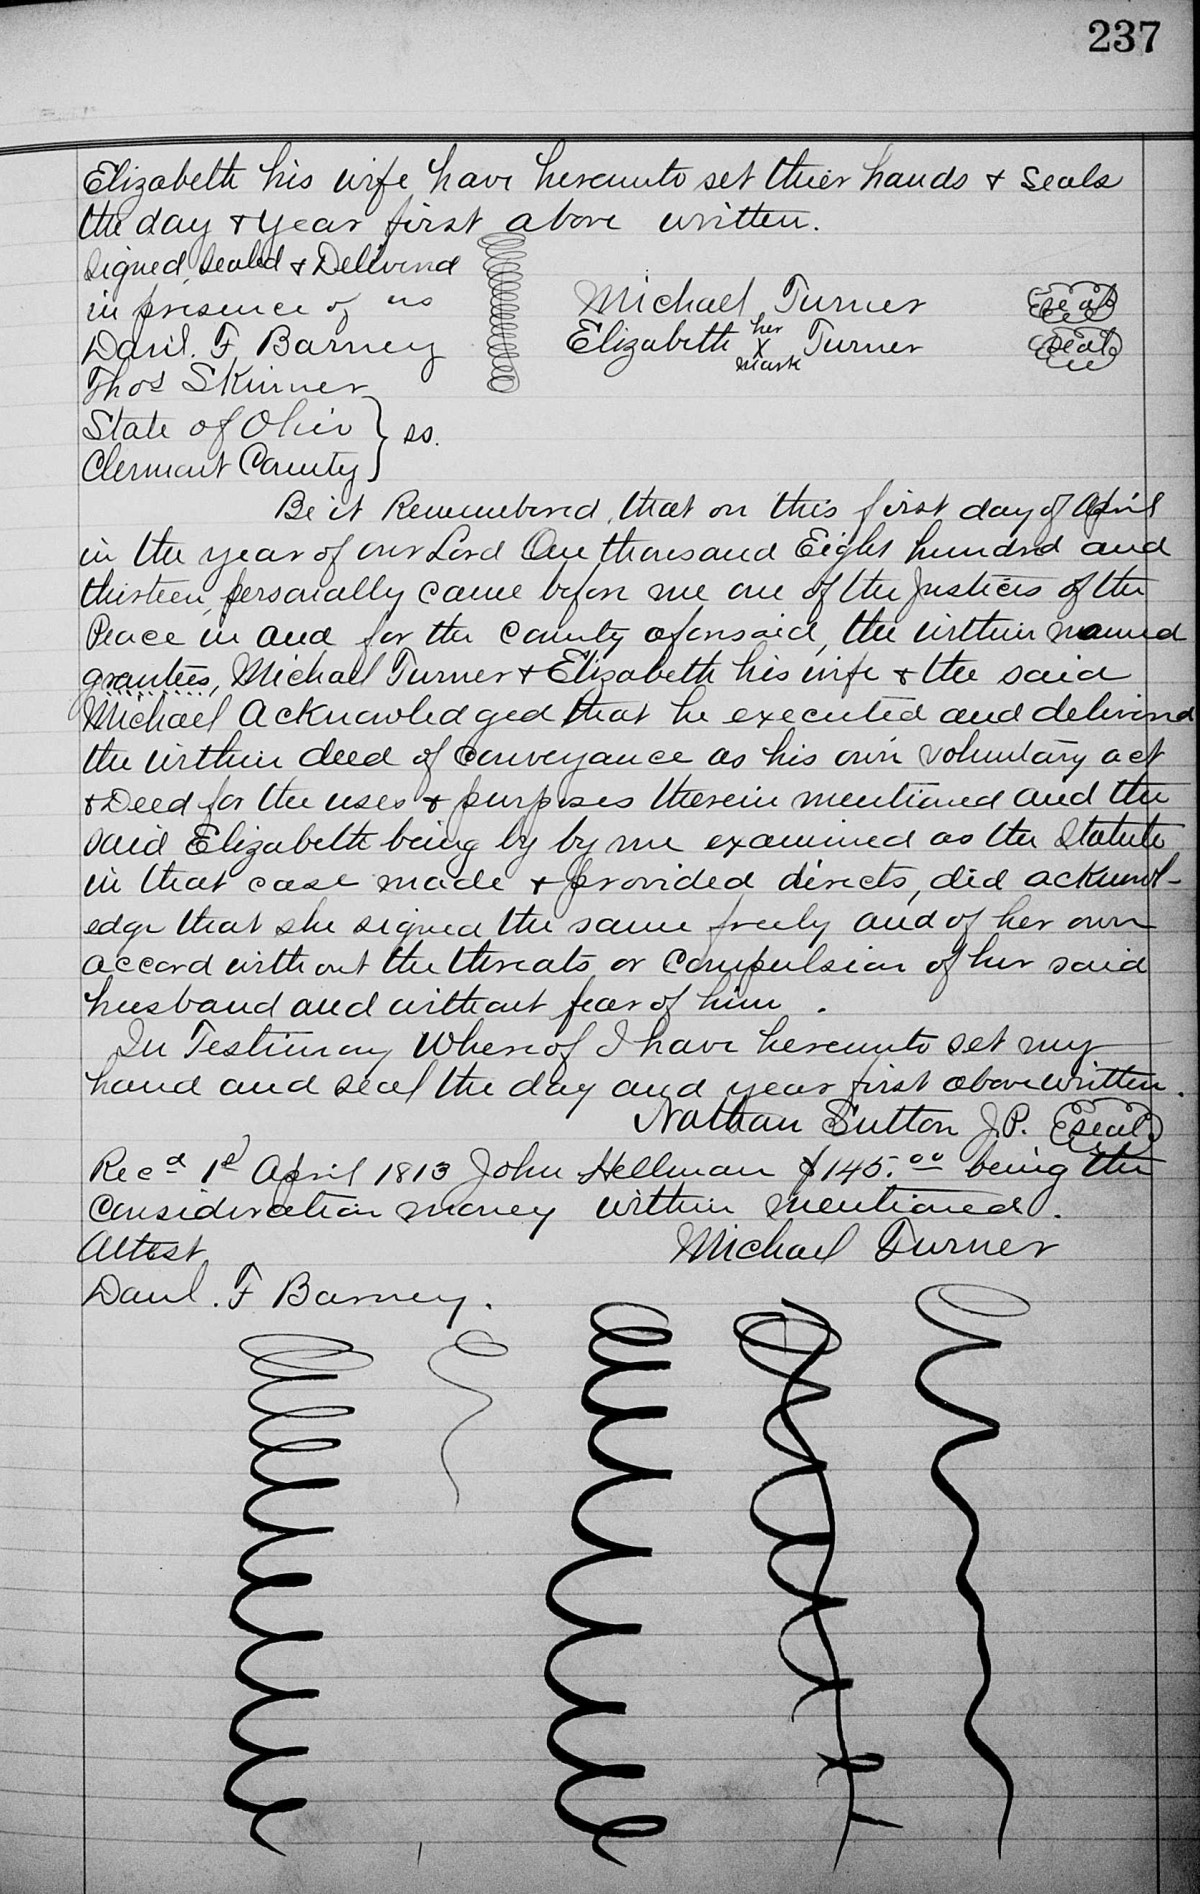 237
Elizabeth his wife have hereunto set their hands & seals
the day & year first above written.
Signed, Sealed & Delivered
in presence of us
Michael Turner (seal)
Danl. F Barney
Elizabeth her X mark Turner (seal)
Thos Skinner
State of Ohio } ss.
Clermont County }
Be it Remembered, that on this first day of April
in the year of our Lord One thousand Eight hundred and
thirteen, personally came before me one of the Justices of the
Peace in and for the County aforesaid, the within named
grantees, Michael Turner & Elizabeth his wife & the said
Michael Acknowledged that he executed and delivered
the within deed of Conveyance as his own voluntary act
& Deed for the uses & purposes therein mentioned and the
said Elizabeth being by by me examined as the Statute
in that case made & provided directs, did acknowl-
edge that she signed the same freely and of her own
accord without the threats or Compulsion of her said
husband and without fear of him.
In Testimony Whereof I have hereunto set my
hand and seal the day and year first above written.
Nathan Sutton J.P. (seal)
Recd 1st April 1813 John Hellman $145.00 being the
Consideration money within mentioned.
Attest Michael Turner
Danl. F Barney.